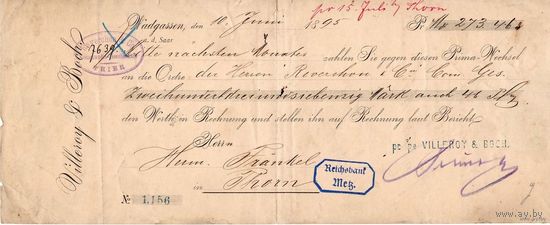 pr 15. July Thorn
Wadgassen, den 10 Juni 1895 P. M 273.46
a. d. Saar
nächsten Monats zahlen Sie gegen diesen Prima-Wechsel
7639
TRIER
an die Ordre der Herren Reverchon & Cie Com. Ges.
Zweihundertdreiundsiebenzig Mark und 46 Pfg
den Werth in Rechnung und stellen ihn auf Rechnung laut Bericht.
Villeroy & Boch.
Herrn
Heim. Fränkel
in Thorn
Reichsbank
Metz.
VILLEROY & BOCH.
№ 1,156
ay.by